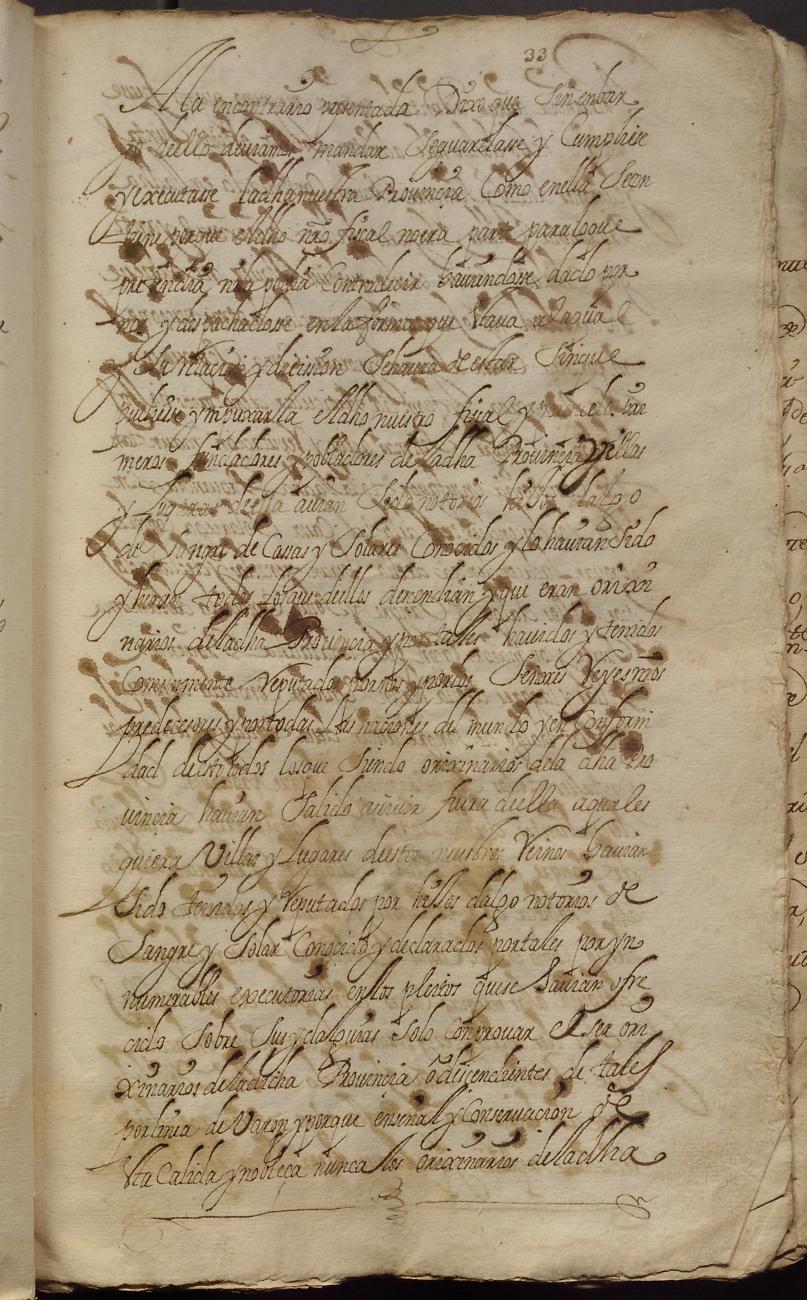 33
A la encontrario presentada Dixo que sin enbar
go dello deviamos mandar se guardase y Cumpliese
y executase la dha nuestra Provission Como en ella Secon
tiene porque el dho nro fiscal no era parte para lo que
pretendia, ni la podia Contradecir haviendose dado por
nos y despachadose en la forma que
la relacion y decission Se havia de estar Sin que
pudiese ynpuxarla el dho nuestro fiscal y los pri
meros fundadores y pobladores de la dha Provincia Villas
y Lugares de ella avian Sido notorios hijos dalgo
de Sangre de Cassas y Solares Conocidos y lo havian Sido
y heran todos los que dellos decendian y que eran orixi
narios de la dha Provincia y por tales havidos y tenidos
Comunmente reputados por nos y por los Señores Reyes nros
predecesores y por todas las naciones del mundo y en Conformi
dad desto todos los que Siendo orixinarios de la dha Pro
vincia havian Salido a vivir fuera della a quales
quiera Villas y Lugares destos nuestros Reinos havian
Sido tenidos y reputados por hijos dalgo notorios de
Sangre y Solar Conocido y declarados por tales por yn
numerables executorias en los pleitos que se havian ofre
cido Sobre Sus ydalguias Solo Con provar el ser ori
xinarios de la dicha Provincia o descendientes de tales
por linea de Varon y porque en señal y Conservacion de
esta Calidad y nobleça nunca los orixinarios de la dha